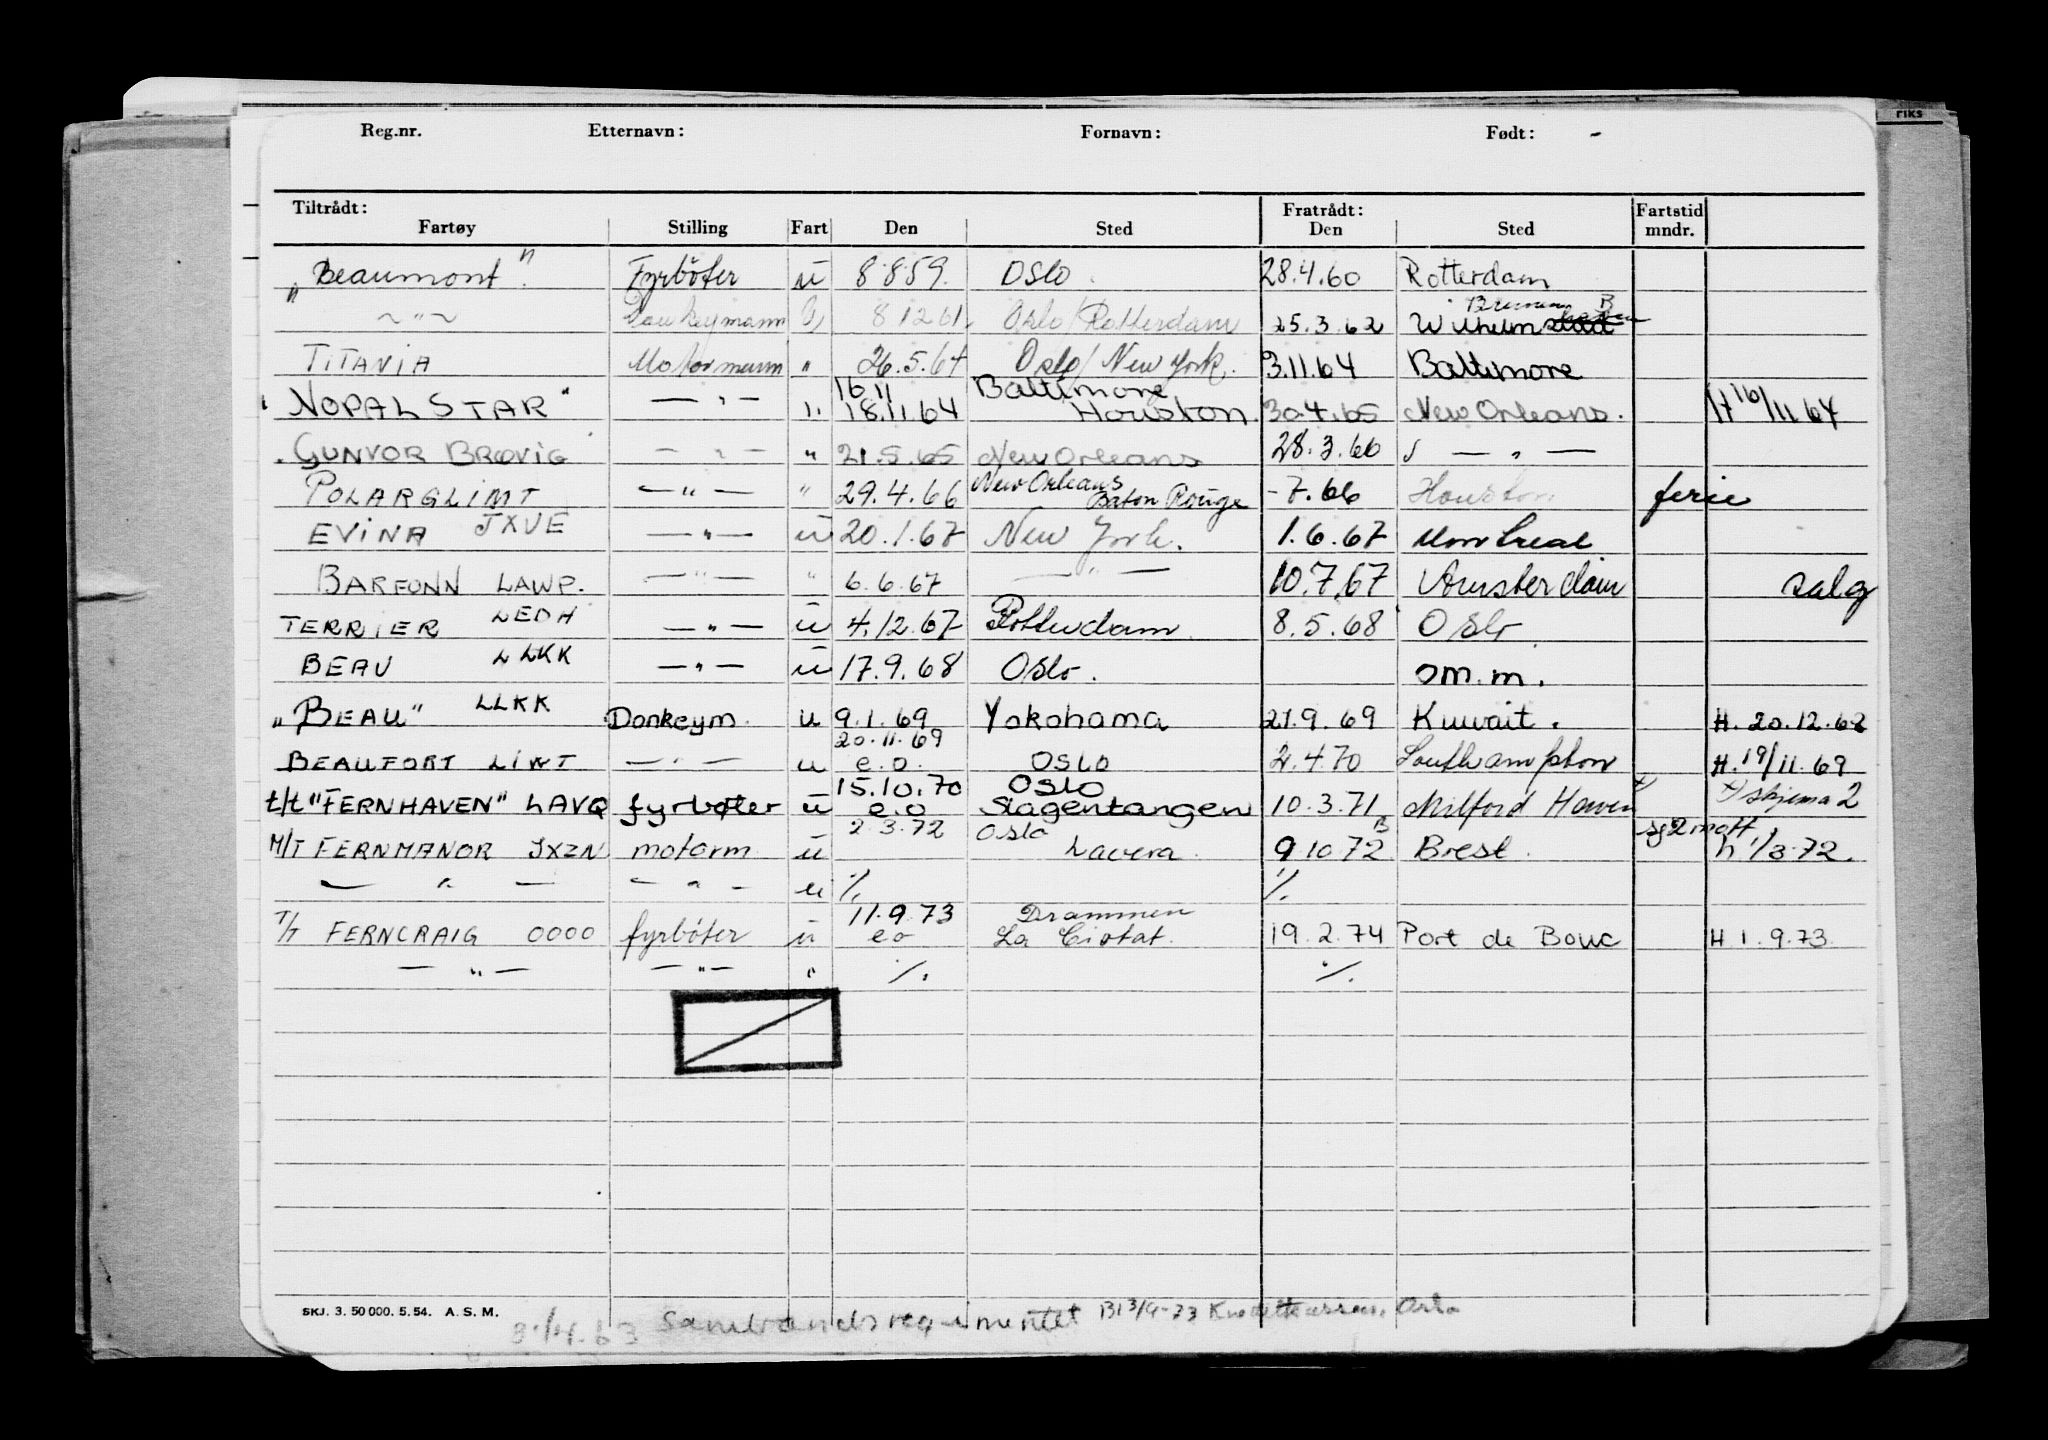 riks
Reg.nr. Etternavn: Fornavn: Født: -
Tiltrådt: Fratrådt: Fartstid
Fartøy Stilling Fart Den Sted Den Sted mndr.
"Beaumont". Fyrbøter u 8 8 59. Oslo. 28.4.60 Rotterdam
~ " ~ Donkeymann 8 12 61. Oslo/Rotterdam 25.3.62 Wilhelm
TITANIA Motormann " 26.5.64 Oslo/New York. 3.11.64 Baltimore
16 11 Baltimore
"NOPAL STAR" — " — " 18.11.64 Houston. 30.4.65 New Orleans. H 16/11 64
GUNVOR BRØVIG — " — " 21.5.65 New Orleans 28.3.66 — " —
POLARGLIMT — " — " 29.4.66 New Orleans Baton Rouge -7.66 Houston ferie
EVINA JXVE — " — u 20.1.67 New York. 1.6.67 Montreal
BARFONN LAWP. — " — " 6.6.67 — " — 10.7.67 Amsterdam salg
TERRIER LEDH — " — u 4.12.67 Rotterdam 8.5.68 Oslo
BEAU LLKK — " — u 17.9.68 Oslo. om.m.
"BEAU" LLKK Donkeym. u 9.1.69 Yokohama 21.9.69 Kuwait. H. 20.12.68
20.11.69
BEAUFORT LINT — " — u e.o. Oslo 2.4.70 Southampton H. 19/11.69
15.10.70 Oslo
t/t "FERNHAVEN" LAVQ fyrbøter u e.o Slagentangen 10.3.71 Milford Haven x) x) skjema 2
2.3.72 Oslo B sj 2 mott.
M/T FERNMANOR JXZN motorm. u Lavera. 9 10 72 Brest. h 1/3.72.
— " — — " — u % %
11.9.73 Drammen
T/T FERNCRAIG 0000 fyrbøter u eo La Ciotat. 19.2.74 Port de Bouc H 1.9.73
— " — — " — " % %
SKJ. 3. 50 000. 5. 54. A. S. M.
Sambandsregimentet Oslo